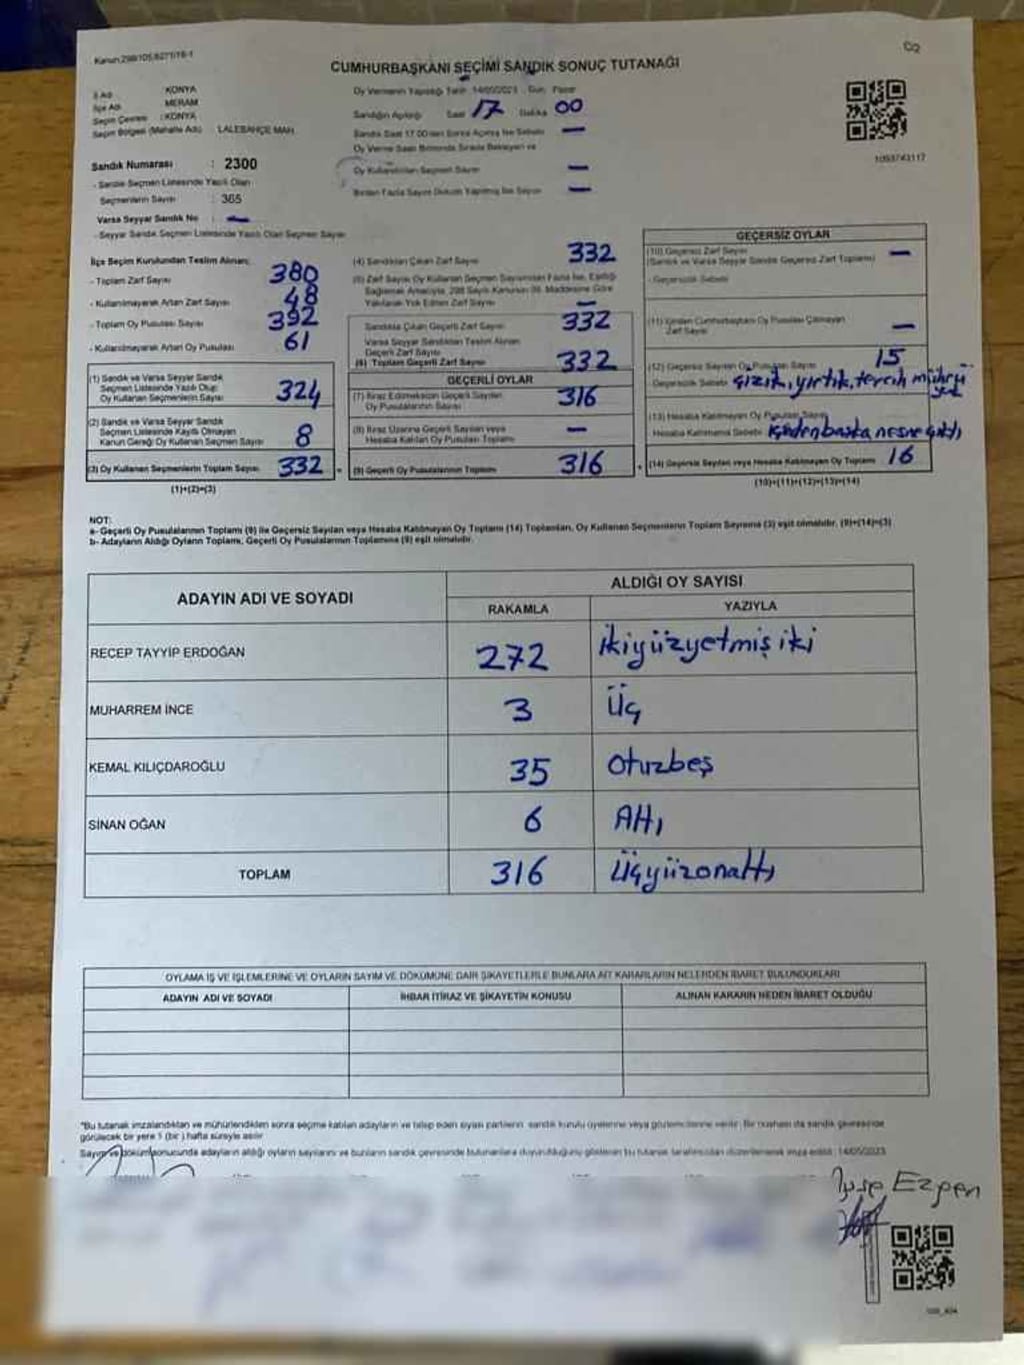 Kanun:298/105,6271/16-1
C2
CUMHURBAŞKANI SEÇİMİ SANDIK SONUÇ TUTANAĞI
İl Adı KONYA
İlçe Adı MERAM
Seçim Çevresi : KONYA
Seçim Bölgesi (Mahalle Adı) LALEBAHÇE MAH.
Oy Vermenin Yapıldığı Tarih 14/05/2023 Gün: Pazar
Sandığın Açıldığı Saat 17 Dakika 00
Sandık Saat 17.00'den Sonra Açılmış İse Sebebi —
Oy Verme Saati Bitiminde Sırada Bekleyen ve
Oy Kullandırılan Seçmen Sayısı —
Birden Fazla Sayım Döküm Yapılmış İse Sayısı —
1093743117
Sandık Numarası : 2300
- Sandık Seçmen Listesinde Yazılı Olan
Seçmenlerin Sayısı : 365
Varsa Seyyar Sandık No : —
- Seyyar Sandık Seçmen Listesinde Yazılı Olan Seçmen Sayısı
İlçe Seçim Kurulundan Teslim Alınan:
- Toplam Zarf Sayısı 380
- Kullanılmayarak Artan Zarf Sayısı 48
- Toplam Oy Pusulası Sayısı 392
- Kullanılmayarak Artan Oy Pusulası 61
(1) Sandık ve Varsa Seyyar Sandık
Seçmen Listesinde Yazılı Olup
Oy Kullanan Seçmenlerin Sayısı 324
(2) Sandık ve Varsa Seyyar Sandık
Seçmen Listesinde Kayıtlı Olmayan
Kanun Gereği Oy Kullanan Seçmen Sayısı 8
(3) Oy Kullanan Seçmenlerin Toplam Sayısı 332
(1)+(2)=(3)
(4) Sandıktan Çıkan Zarf Sayısı 332
(5) Zarf Sayısı Oy Kullanan Seçmen Sayısından Fazla İse, Eşitliği
Sağlamak Amacıyla, 298 Sayılı Kanunun 98. Maddesine Göre
Yakılarak Yok Edilen Zarf Sayısı —
Sandıkta Çıkan Geçerli Zarf Sayısı 332
Varsa Seyyar Sandıktan Teslim Alınan
Geçerli Zarf Sayısı
(6) Toplam Geçerli Zarf Sayısı 332
GEÇERLİ OYLAR
(7) İtiraz Edilmeksizin Geçerli Sayılan
Oy Pusulalarının Sayısı 316
(8) İtiraz Üzerine Geçerli Sayılan veya
Hesaba Katılan Oy Pusulası Toplamı —
(9) Geçerli Oy Pusulalarının Toplamı 316
GEÇERSİZ OYLAR
(10) Geçersiz Zarf Sayısı
(Sandık ve Varsa Seyyar Sandık Geçersiz Zarf Toplamı) —
- Geçersizlik Sebebi
(11) İçinden Cumhurbaşkanı Oy Pusulası Çıkmayan
Zarf Sayısı —
(12) Geçersiz Sayılan Oy Pusulası Sayısı 15
Geçersizlik Sebebi çizik, yırtık, tercih mührü yok
(13) Hesaba Katılmayan Oy Pusulası Sayısı
Hesaba Katılmama Sebebi içinden başka nesne çıktı
(14) Geçersiz Sayılan veya Hesaba Katılmayan Oy Toplamı 16
(10)+(11)+(12)+(13)=(14)
NOT:
a- Geçerli Oy Pusulalarının Toplamı (9) ile Geçersiz Sayılan veya Hesaba Katılmayan Oy Toplamı (14) Toplamları, Oy Kullanan Seçmenlerin Toplam Sayısına (3) eşit olmalıdır. (9)+(14)=(3)
b- Adayların Aldığı Oyların Toplamı, Geçerli Oy Pusulalarının Toplamına (9) eşit olmalıdır.
ADAYIN ADI VE SOYADI
ALDIĞI OY SAYISI
RAKAMLA YAZIYLA
RECEP TAYYİP ERDOĞAN 272 ikiyüzyetmiş iki
MUHARREM İNCE 3 Üç
KEMAL KILIÇDAROĞLU 35 otuzbeş
SİNAN OĞAN 6 Altı
TOPLAM 316 Üçyüzonaltı
OYLAMA İŞ VE İŞLEMLERİNE VE OYLARIN SAYIM VE DÖKÜMÜNE DAİR ŞİKAYETLERLE BUNLARA AİT KARARLARIN NELERDEN İBARET BULUNDUKLARI
ADAYIN ADI VE SOYADI İHBAR İTİRAZ VE ŞİKAYETİN KONUSU ALINAN KARARIN NEDEN İBARET OLDUĞU
"Bu tutanak imzalandıktan ve mühürlendikten sonra seçime katılan adayların ve talep eden siyasi partilerin sandık kurulu üyelerine veya gözlemcilerine verilir. Bir nüshası da sandık çevresinde
görülecek bir yere 1 (bir) hafta süreyle asılır.
Sayım ve döküm sonucunda adayların aldığı oyların sayılarını ve bunların sandık çevresinde bulunanlara duyurulduğunu gösteren bu tutanak tarafımızdan düzenlenerek imza edildi. 14/05/2023